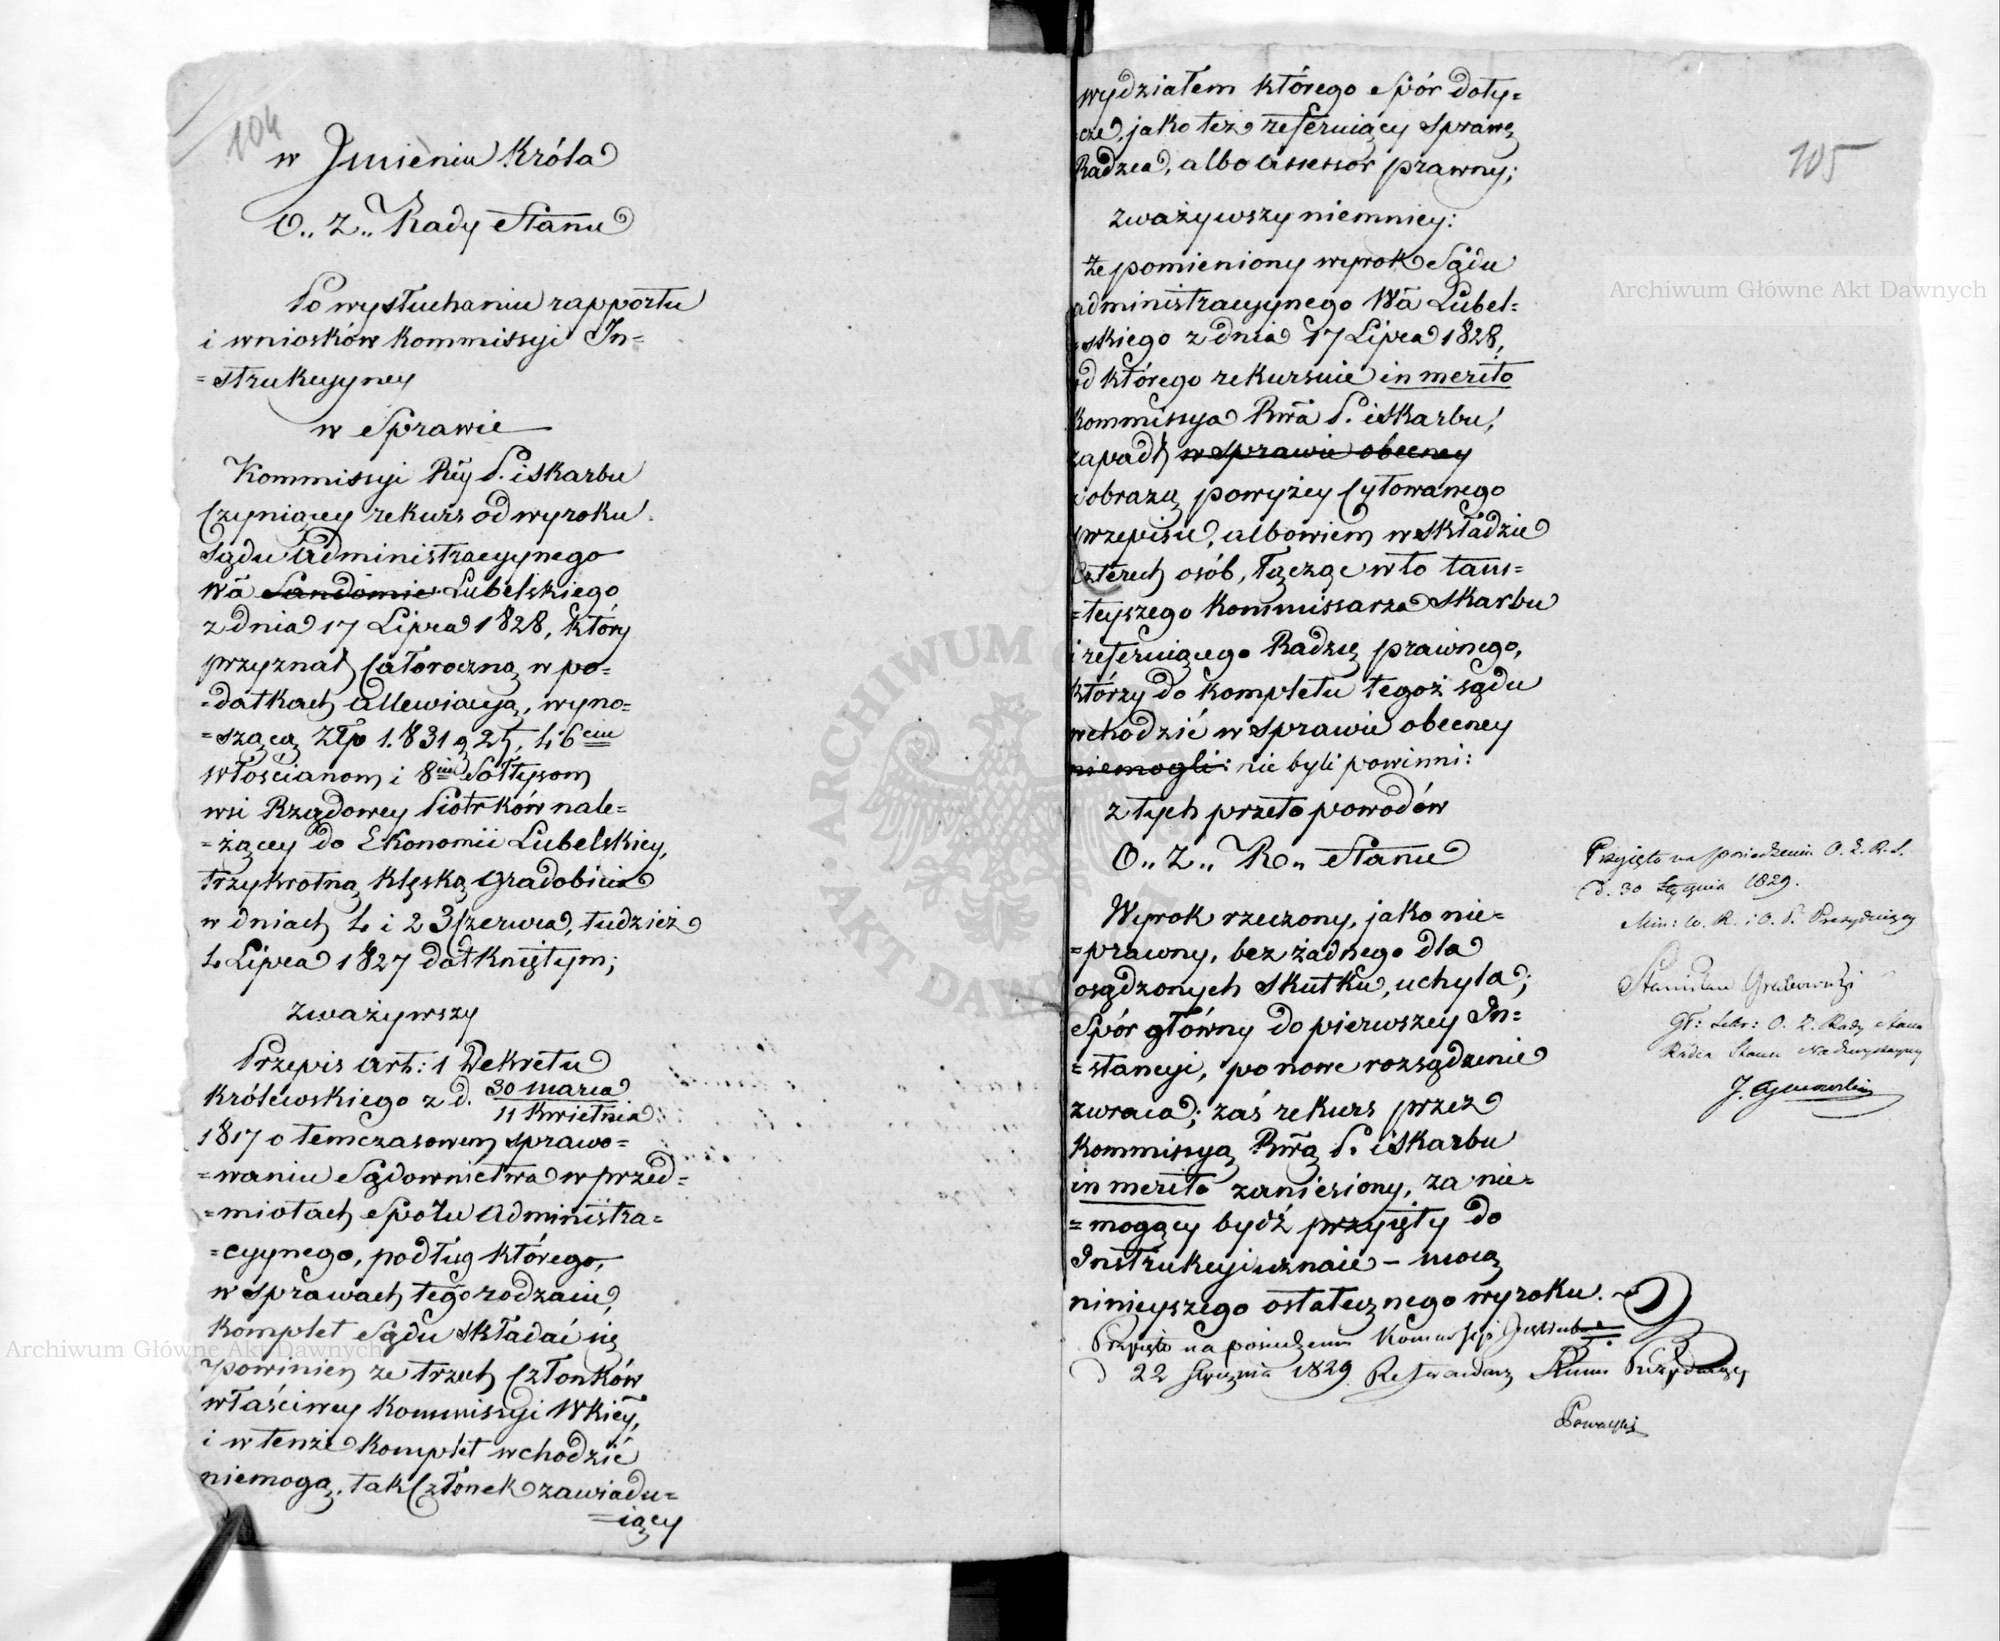 104
w Jmieniu Króla
O. Z. Rady Stanu
Po wysłuchaniu rapportu
i wniosków Kommissyi In=
=strukcyyney
w Sprawie
Kommissyi Rẅy P. i Skarbu
Czyniącey rekurs od wyroku
Sądu Administracyynego
Wä Sandomie Lubelskiego
z dnia 17 Lipca 1828, który
przyznał Całoroczną w po=
=datkach allewiacyą, wyno=
=szącą Złp 1.831 g 25, 46ciu
włościanom i 8iu Sołtysom
wsi Rządowey Piotrków nale=
=żącey do Ekonomii Lubelskiey,
trzykrotną klęską gradobicia
w dniach 4 i 23 Czerwca, tudzież
4 Lipca 1827 dotkniętym;
zważywszy
Przepis art: 1 Dekretu
Królewskiego z d. 30 marca
11 Kwietnia
1817 o temczasowem sprawo=
=waniu Sądownictwa w przed=
=miotach Sporu Administra=
=cyynego, podług którego,
w sprawach tego rodzaiu,
Komplet Sądu składać się
powinien ze trzech Członków
właściwey Kommissyi Wkiey,
i w tenże Komplet wchodzić
niemogą, tak Członek zawiadu=
=iący
105
wydziałem którego Spór doty=
=cze, jako też referuiący sprawę
Radzca, albo assessor prawny;
zważywszy niemniey:
że pomieniony wyrok Sądu
administracyynego Wä Lubel=
=skiego z dnia 17 Lipca 1828,
od którego rekursuie in merito
Kommissya Rwä P. i Skarbu,
zapadł w sprawie obecney
z obrazą powyżey Cytowanego
przepisu, albowiem w składzie
Czterech osób, łącząc w to tam=
=teyszego Kommissarza Skarbu
i referuiącego Radzcę prawnego,
którzy do kompletu tegoż sądu
wchodzić w sprawie obecney
niemogli: nie byli powinni:
z tych przeto powodów
O. Z. R. Stanu
Wyrok rzeczony, jako nie=
=prawny, bez żadnego dla
osądzonych skutku, uchyla;
Spór główny do pierwszey In=
=stancyi, po nowe rozsądzenie
zwraca; zaś rekurs przez
Kommissyą Rwą P. i Skarbu
in merito zaniesiony, za nie=
=mogący bydź przyięty do
Instrukcyi uznaie – mocą
ninieyszego ostatecznego wyroku.
Przyięto na posiedzeniu Kommissyi
d 22 Stycznia 1829. Referendarz Stanu Prezyduiący
Przyięto na posiedzeniu O. Z. R. S.
d. 30 Stycznia 1829.
Min: W. R. i O. P. Prezyduiący
Stanisław Grabowski
Sekr: O. Z. Rady Stanu
Radca Stanu Nadzwyczayny
Archiwum Główne Akt Dawnych
Archiwum Główne Akt Dawnych
ARCHIWUM
AKT DAWN